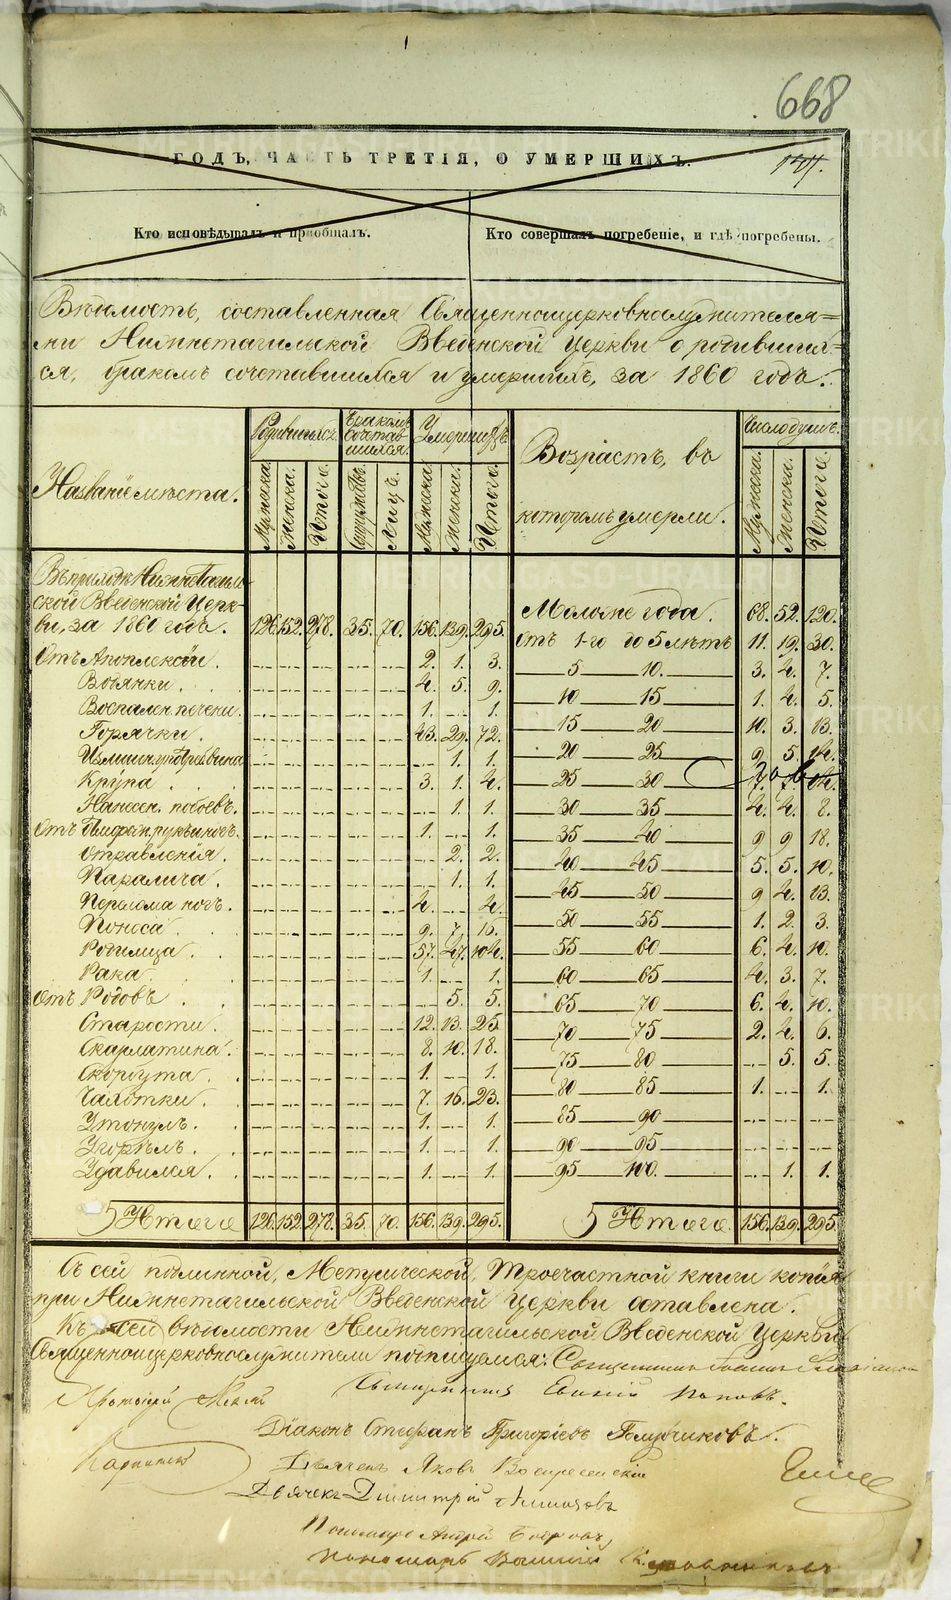 668
ГОДЪ, ЧАСТЬ ТРЕТІЯ, О УМЕРШИХЪ.
Кто исповѣдывалъ и пріобщалъ.
Кто совершалъ погребеніе, и гдѣ погребены.
Вѣдомость, составленная Священноцерковнослужителя=
ми Нижнетагильской Введенской Церкви о родивших=
ся, бракомъ сочетавшихся и умершихъ, за 1860 годъ.
Названіе мѣста. Родившихся. Бракомъ сочетавшихся. Умершихъ. Возрастъ, въ которомъ умерли. Число душъ.
Мужеска. Женска. Итого. Лицъ. Мужеска. Женска. Итого. Мужеска. Женска. Итого.
Въ приходѣ Нижнетагиль-
ской Введенской Церк-
ви, за 1860 годъ. 126. 152. 278. 35. 70. 156. 139. 295. Моложе года. 68. 52. 120.
отъ 1-го до 5 лѣтъ 11. 19. 30.
Отъ Апоплексіи. 2. 1. 3. 5 10. 3. 4. 7.
4. 5. 9. 10 15 1. 4. 5.
Воспален. печени. 1. 1. 15 20 10. 3. 13.
Горячки. 43. 29. 72. 20 25 9. 5. 14.
1. 1. 25 30
Крупа 3. 1. 4. 30 35 4. 4. 8.
Нанесен. побоевъ. 1. 1. 35 40 9 9 18.
1. 1. 40 45 5. 5. 10.
отравленія. 2. 2. 45 50 9 4. 13.
Паралича. 1. 1. 50 55 1. 2. 3.
4. 4. 55 60 6. 4. 10.
Поноса 9. 7. 16. 60 65 4. 3. 7.
Родимца 57. 47. 104. 65 70 6. 4. 10.
Рака 1. 1. 70 75 2. 4. 6.
Отъ Родовъ 5. 5. 75 80 5. 5.
Старости. 12. 13. 25. 80 85 1. 1.
Скарлатина. 8. 10. 18. 85 90
Скорбута 1. 1. 90 95
Чахотки. 7. 16. 23. 95 100. 1. 1.
Утонулъ. 1. 1.
Угорѣлъ. 1. 1.
Удавился. 1. 1.
Итого 126. 152. 278. 35. 70. 156. 139. 295. Итого. 156. 139. 295.
Съ сей подлинной, Метрической, Троечастной книги копія
при Нижнетагильской Введенской Церкви оставлена.
Къ сей вѣдомости Нижнетагильской Введенской Церкви
Священноцерковнослужители подписуемся: Священникъ
Священникъ Поповъ.
Діаконъ Стефанъ Григоріевъ Голубчиковъ.
Дьячекъ Яковъ Воскресенскій
Дьячекъ Димитрій
Пономарь Андрей
Пономарь